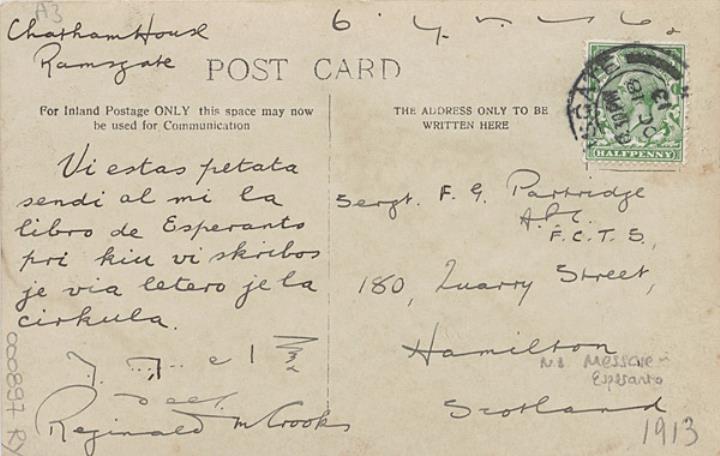 A3
Chatham House
Ramsgate
POST CARD
For Inland Postage ONLY this space may now
be used for Communication
THE ADDRESS ONLY TO BE
WRITTEN HERE
HALFPENNY
Vi estas petata
sendi al mi la
libro de Esperanto
pri kiu vi skribos
je via letero je la
cirkula.
Reginald McCrooks
Sergt. F. G. Partridge
F.C.T.S.,
180, Quarry Street,
Hamilton,
Scotland
N.B. MESSAGE in
Esperanto
1913
000897 RY